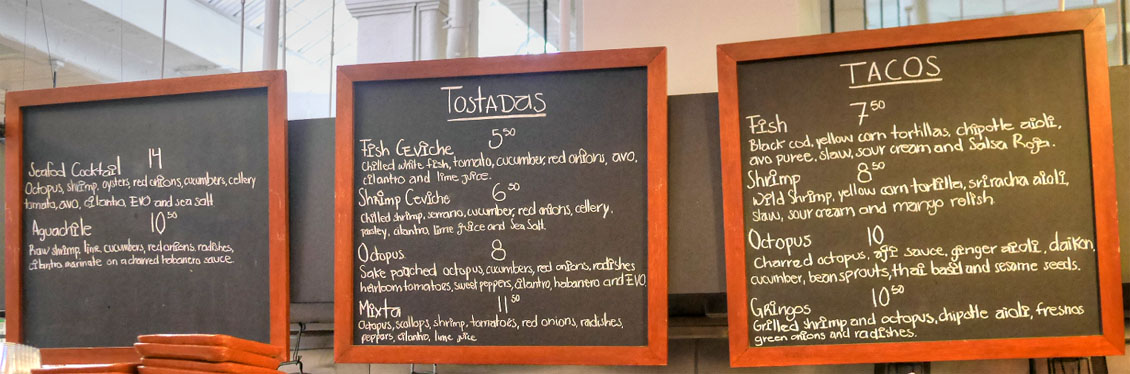 Seafod Cocktail 14
Octopus, shrimp, oysters, red onions, cucumbers, cellery
tomato, avo, cilantro, EVO and sea salt
Aguachile 10 50
Raw shrimp, lime, cucumbers, red onions, radishes,
cilantro, marinate on a charred habanero sauce.
Tostadas
Fish Ceviche 5 50
Chilled white fish, tomato, cucumber, red onions, avo,
cilantro and lime juice.
Shrimp Ceviche 6 50
Chilled shrimp, serrano, cucumber, red onions, cellery,
parsley, cilantro, lime juice and Sea Salt.
Octopus 8
Sake poached octopus, cucumbers, red onions, radishes
heirloom tomatoes, sweet peppers, cilantro, habanero and EVO.
Mixta 11 50
Octopus, scallops, shrimp, tomatoes, red onions, radishes,
peppers, cilantro, lime juice
TACOS
Fish 7 50
Black cod, yellow corn tortillas, chipotle aioli,
avo puree, slaw, sour cream and Salsa Roja.
Shrimp 8 50
Wild Shrimp, yellow corn tortilla, sriracha aioli,
slaw, sour cream and mango relish
Octopus 10
Charred octopus, aji sauce, ginger aioli, daikon,
cucumber, bean sprouts, thai basil and sesame seeds.
Gringos 10 50
Grilled shrimp and octopus, chipotle aioli, fresnos
green onions and radishes.